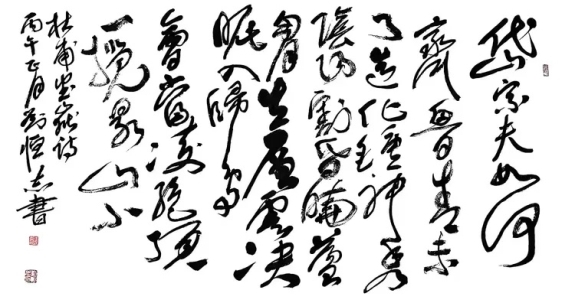 岱宗夫如何
齊魯青未
了造化鍾神秀
陰陽割昏曉蕩
胸生層雲決
眥入歸鳥
會當凌絕頂
一覽眾山小
杜甫望嶽詩
丙午正月劉恒志書